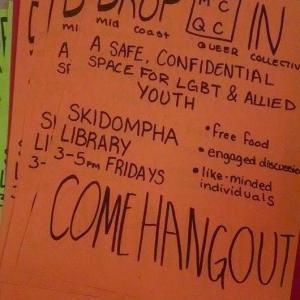 DROP IN
MC
QC
mid coast
QUEER COLLECTIV
A SAFE, CONFIDENTIAL
SPACE FOR LGBT & ALLIED
YOUTH
SKIDOMPHA
LIBRARY
3-5pm FRIDAYS
• free food
• engaged discussion
• like-minded
individuals
COME HANGOUT